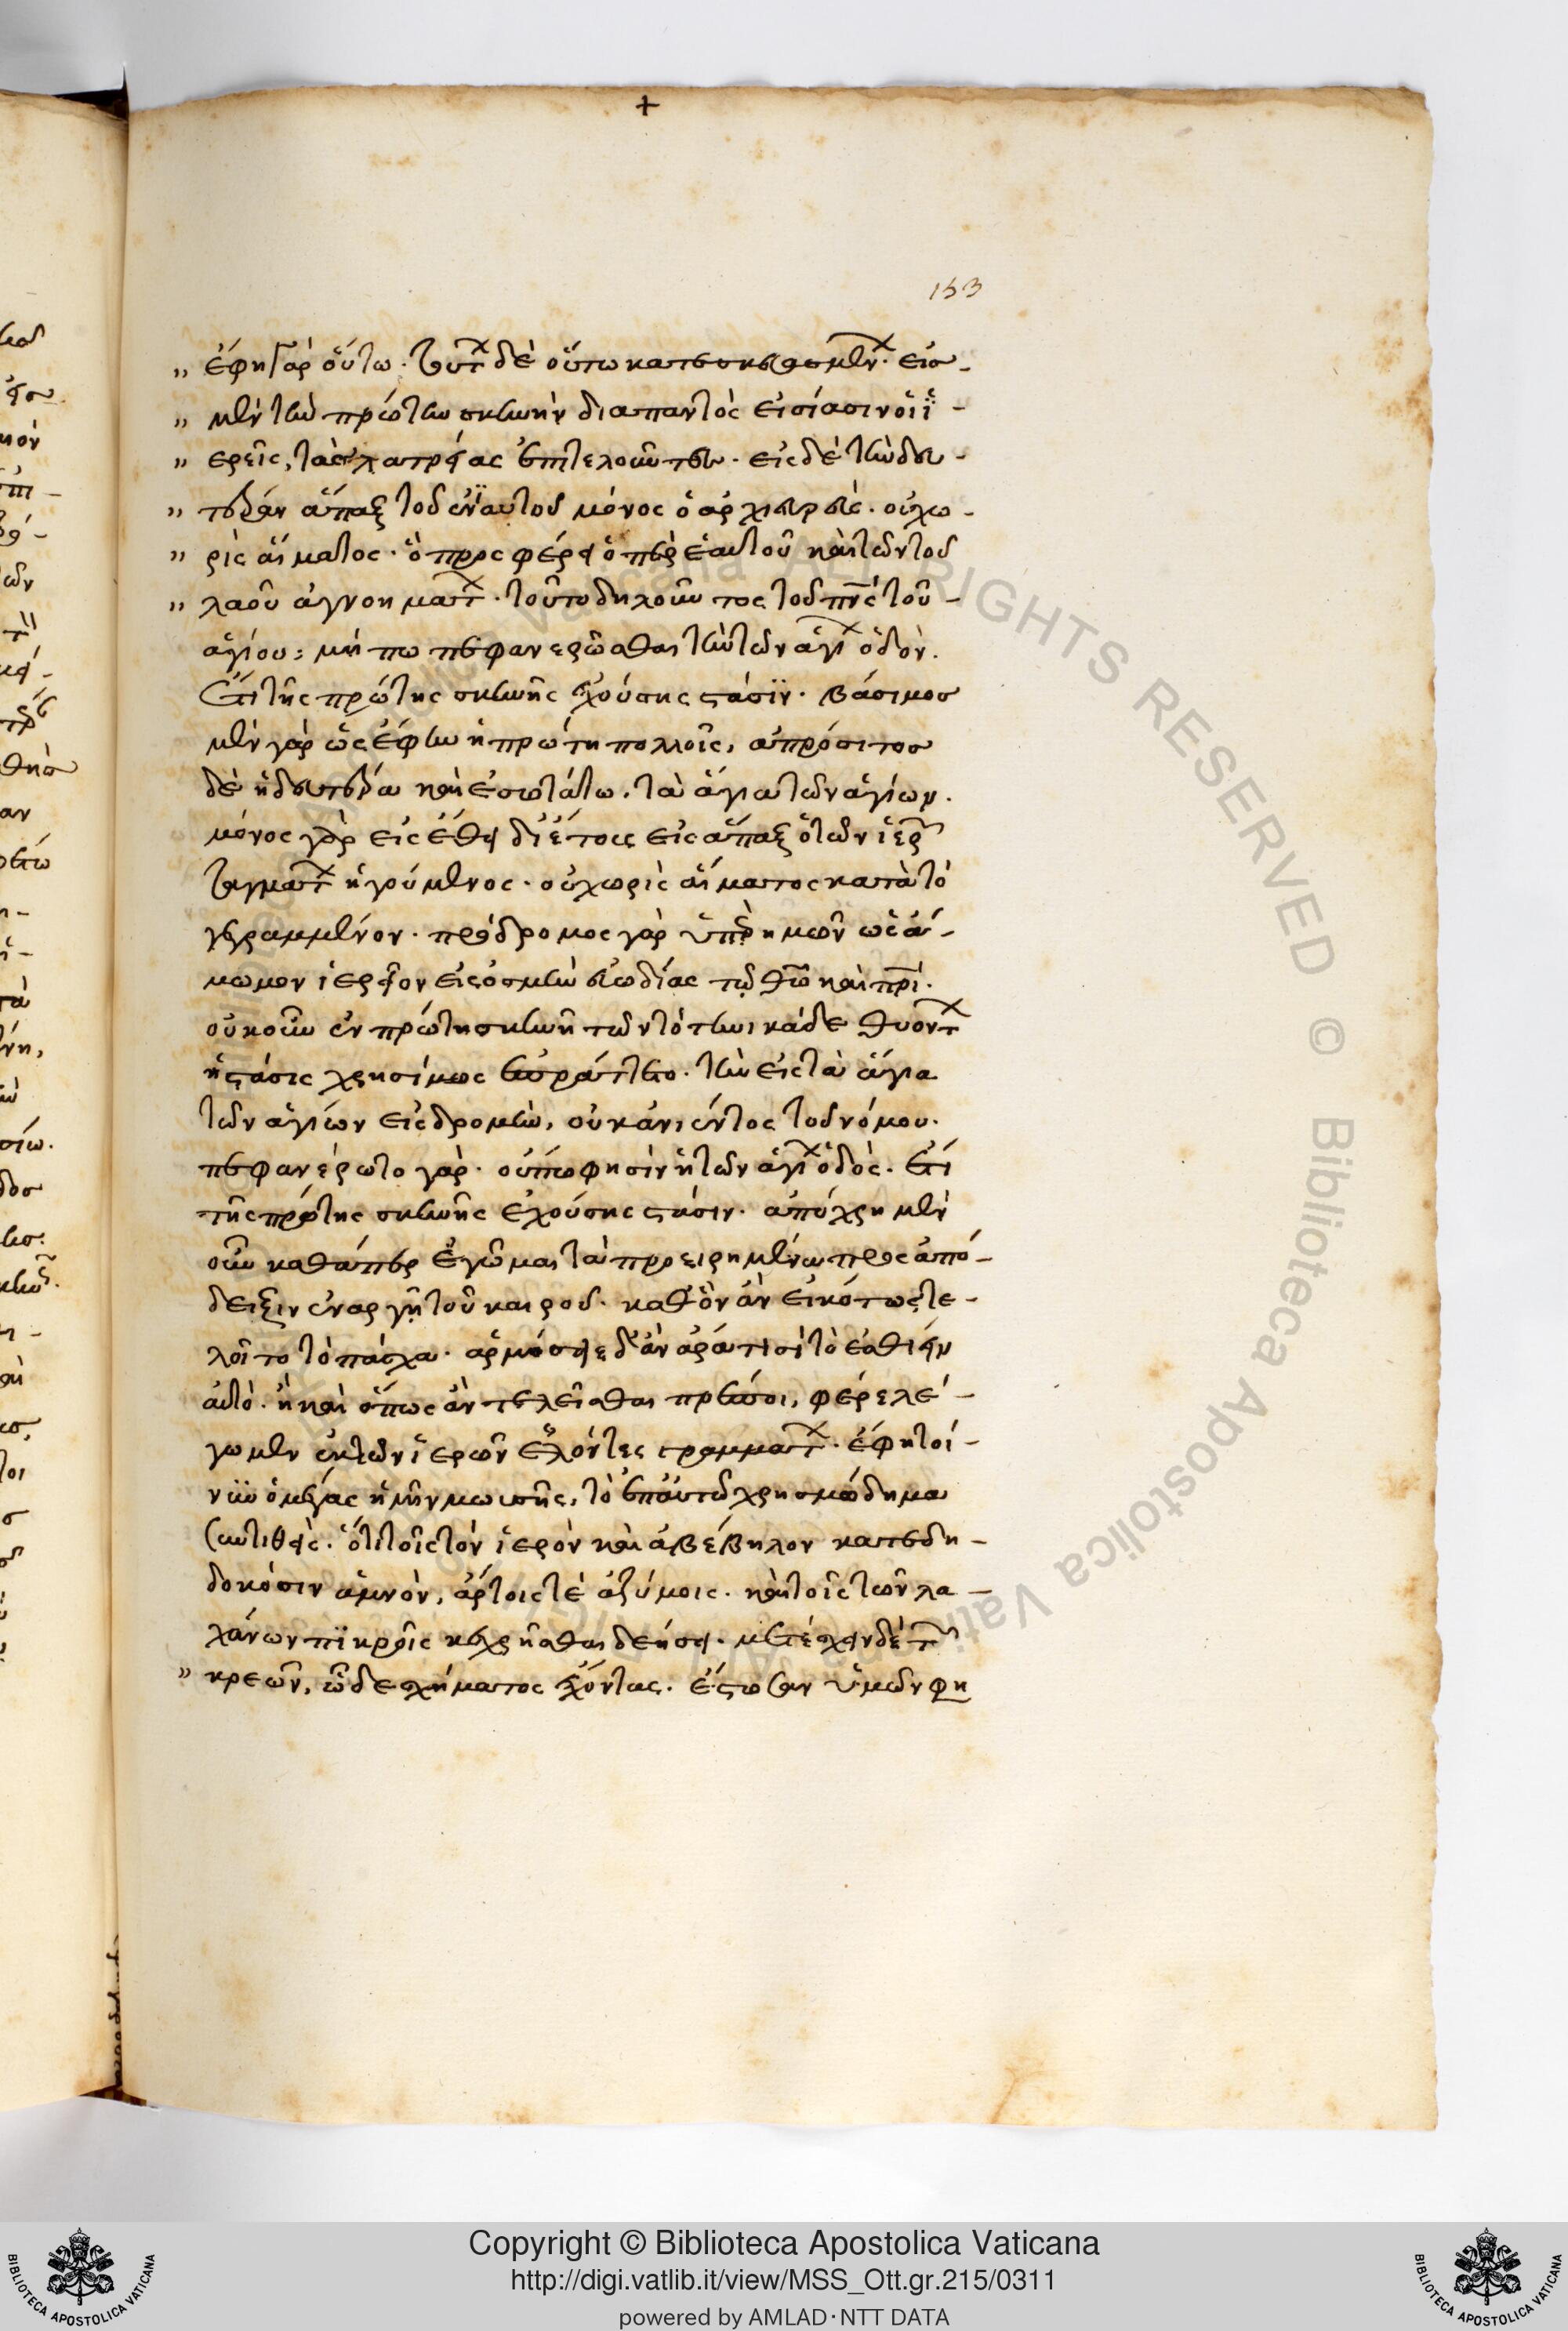 +
153
„ ἔφη γὰρ οὕτω· τούτων δὲ οὕτω κατεσκευασμένων· εἰσ-
„ μὲν τὴν πρώτην σκηνὴν διαπαντὸς εἰσίασιν οἱ ἱ-
„ ερεῖς, τὰς λατρείας ἐπιτελοῦντες· εἰς δὲ τὴν δευ-
„ τέραν ἅπαξ τοῦ ἐνϊαυτοῦ μόνος ὁ ἀρχιερεὺς· οὐ χω-
„ ρὶς αἵματος· ὃ προσφέρει ὑπὲρ ἑαυτοῦ καὶ τῶν τοῦ
„ λαοῦ ἀγνοημάτων· τοῦτο δηλοῦντος τοῦ πνς τοῦ-
ἁγίου: μήπω πεφανερῶσθαι τὴν τῶν ἁγίων ὁδὸν.
Ἔτι τῆς πρώτης σκηνῆς ἐχούσης στάσϊν· βάσιμος
μὲν γὰρ ὡς ἔφην ἡ πρώτη πολλοῖς, ἀπρόσιτος
δὲ ἡ δευτέρα καὶ ἐσωτάτω. τὰ ἅγια τῶν ἁγίων.
μόνος γὰρ εἰς ἔθει δι' ἔτους εἰς ἅπαξ ὁ τῶν ἱερῶν
ταγμάτων ἡγούμενος· οὐ χωρὶς αἵματος κατὰ τὸ
γεγραμμένον· πρόδρομος γὰρ ὑπὲρ ἡμῶν ὡς ἄ-
μωμον ἱερεῖον εἰς ὀσμὴν εὐωδίας τῷ θῶ καὶ πρί.
οὐκοῦν ἐν πρώτη σκηνῆ τῶν τὸ τηνικάδε θυόντων
ἡ στάσις χρησίμως ἐπράττετο. τὴν εἰς τὰ ἅγια
τῶν ἁγίων εἰσδρομὴν, οὐκ ἀνιέντος τοῦ νόμου.
πεφανέρωτο γὰρ· οὔπω φησὶν ἡ τῶν ἁγίων ὁδὸς. ἔτι
τῆς πρώτης σκηνῆς ἐχούσης στάσιν· ἀπόχρη μὲν
οὖν καθάπερ ἐγῶμαι τὰ προειρημένα πρὸς ἀπό-
δειξιν ἐναργῆ τοῦ καιροῦ· καθ' ὃν ἂν εἰκότως τε-
λοῖτο τὸ πάσχα· ἁρμόσειε δ' ἂν ἆρά τισι τὸ ἐσθίειν
αὐτὸ. ἢ καὶ ὅπως ἂν τελεῖσθαι πρέποι, φέρε λέ-
γωμεν ἐκ τῶν ἱερῶν ἑλόντες γραμμάτων· ἔφη τοί-
νϋν ὁ μέγας ἡμῖν μωυσῆς, τὸ ἐπ' αὐτῶ χρησμώδημα
συντιθεὶς· ὅτι τοῖς τὸν ἱερὸν καὶ ἀβέβηλον κατεδη-
δοκόσιν ἀμνὸν, ἄρτοις τὲ ἀζύμοις· καὶ τοῖς τῶν λα-
χάνων πϊκροῖς κεχρῆσθαι δεήσει· μετέσχειν δὲ τῶν
„ κρεῶν, ὧδε σχήματος ἔχοντας· ἔστωσαν ὑμῶν φη
Copyright © Biblioteca Apostolica Vaticana
http://digi.vatlib.it/view/MSS_Ott.gr.215/0311
powered by AMLAD·NTT DATA